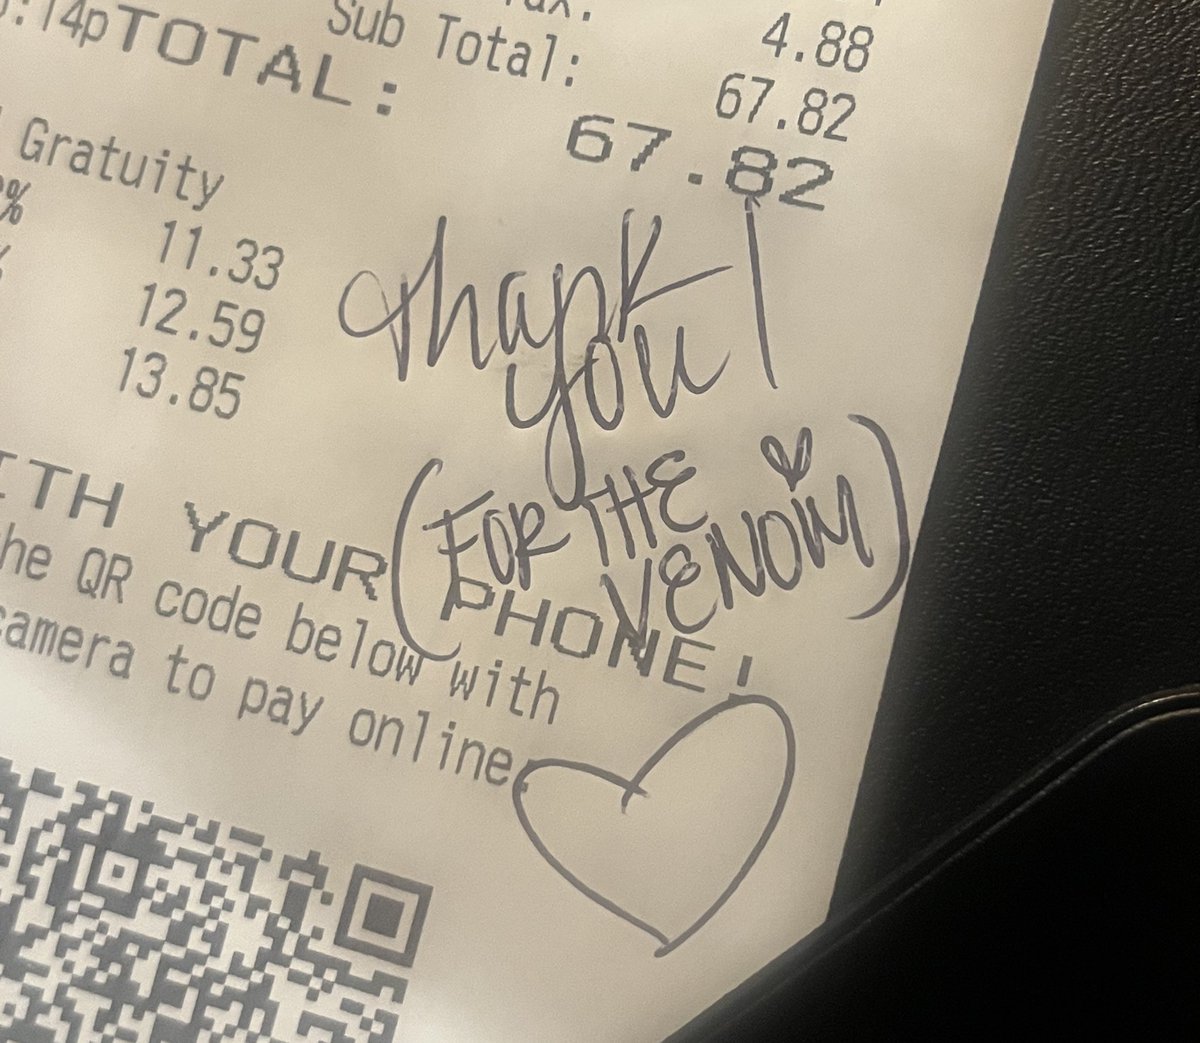 4.88
Sub Total: 67.82
TOTAL: 67.82
Gratuity
% 11.33
% 12.59
13.85
Thank
you!
(FOR THE
VENOM)
YOUR PHONE!
QR code below with
to pay online.